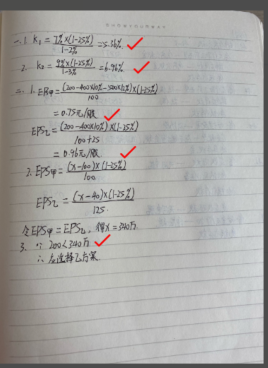 一.1. K₁ = 7%×(1-25%) / 1-2% = 5.36%
2. K₂ = 9%×(1-25%) / 1-3% = 6.96%
二. 1. EPS甲 = (200-400×10%-500×12%)×(1-25%) / 100
= 0.75元/股
EPS乙 = (200-400×10%)×(1-25%) / 100+25
= 0.96元/股
2. EPS甲 = (x-100)×(1-25%) / 100
EPS乙 = (x-40)×(1-25%) / 125
令EPS甲 = EPS乙, 得x = 340万
3. ∵ 200<340万
∴ 应选择乙方案